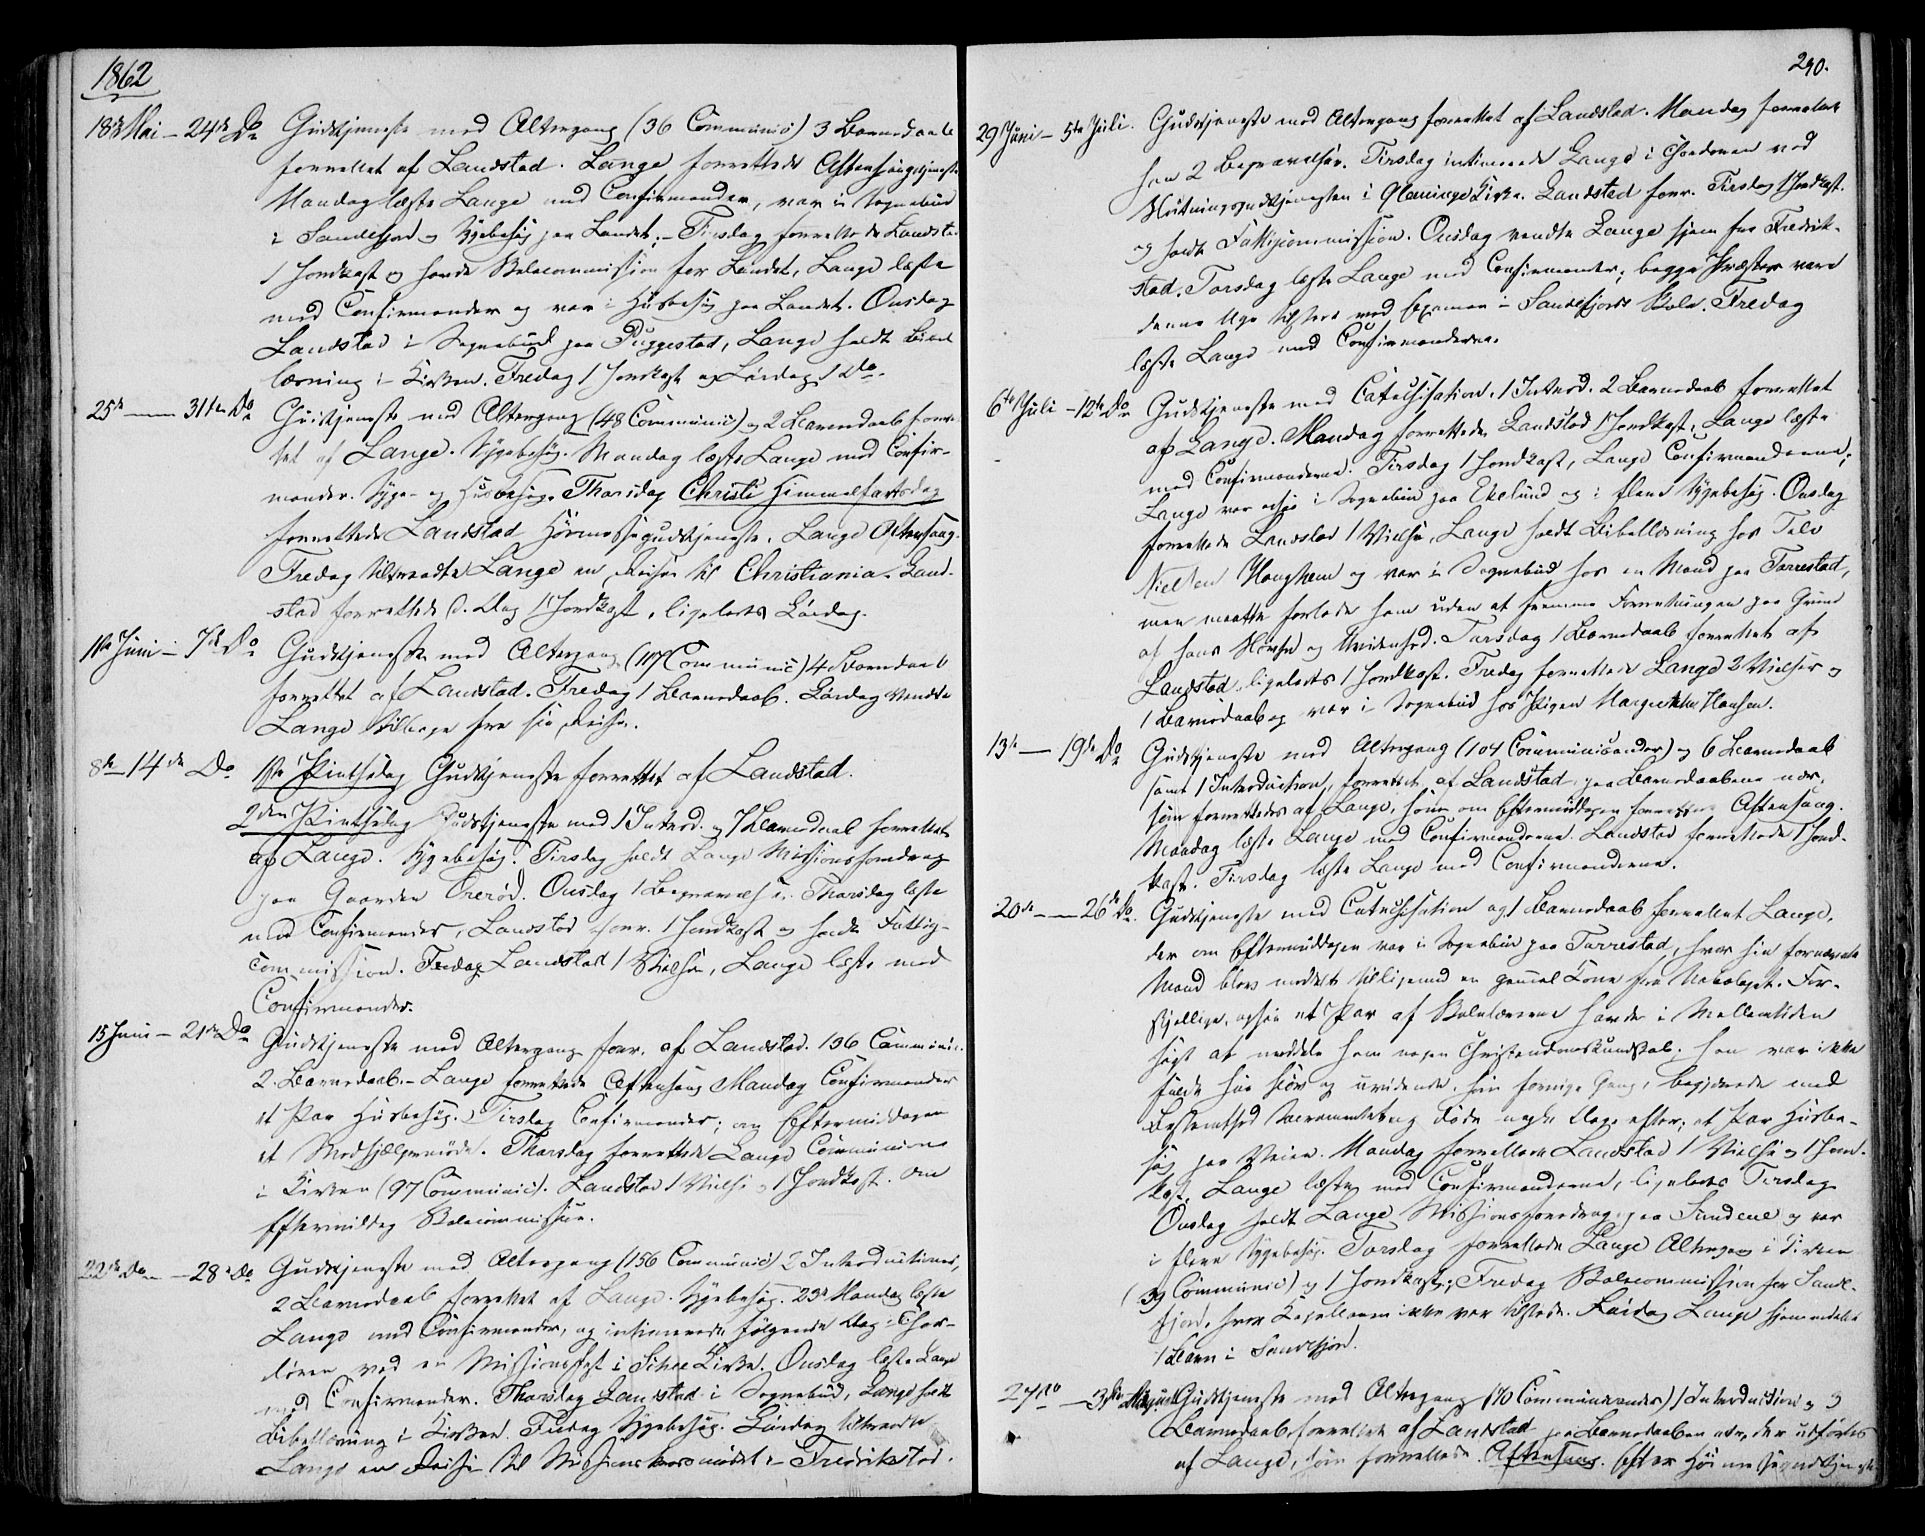 1862
18de Mai – 24de Do Gudstjeneste med Altergang (36 Communic) 3 Barnedaab
forrettet af Landstad. Lange forrettede Aftensangstjeneste
Mandag læste Lange med Confirmander, var i Sognebud
i Sandefjord og Sygebesøg paa Landet; – Tirsdag forrettede Landstad
1 Jordkast og havde Skolecommission for Landet, Lange læste
med Confirmander og var i Husbesøg paa Landet. Onsdag
Landstad i Sognebud paa Puggestad, Lange holdt Bibel
læsning i Kirken. Fredag 1 Jordkast og Lørdag 1 Do.
25de — 31te Do Gudstjeneste med Altergang (48 Communic) og 2 Barnedaab forret
tet af Lange. Sygebesøg. Mandag læste Lange med Confir-
mander. Syge- og Husbesøg. Thorsdag Christi Himmelfartsdag
forrettede Landstad Høimessegudstjeneste, Lange Aftensang.
Fredag tiltraadte Lange en Reise til Christiania. Land-
stad forrettede s. Dag 1 Jordkast, ligeledes Lørdag.
1ste Juni – 7de Do Gudstjeneste med Altergang (107 Communic) 4 Barnedaab
forrettet af Landstad. Fredag 1 Barnedaab. Lørdag vendte
Lange tilbage fra sin Reise.
8de – 14de Do 1ste Pintsedag Gudstjeneste forrettet af Landstad.
2den Pintsedag Gudstjeneste med 1 Introd. og 7 Barnedaab forrettet
af Lange. Sygebesøg. Tirsdag holdt Lange Missionsforedrag
paa Gaarden Örerød. Onsdag 1 Begravelse. Thorsdag læste
med Confirmander, Landstad forr. 1 Jordkast og havde Fattig-
commission. Fredag Landstad 1 Vielse, Lange læste med
Confirmander.
15 Juni – 21de Do Gudstjeneste med Altergang forr. af Landstad. 136 Communic.
2 Barnedaab. – Lange forrettede Aftensang Mandag Confirmander
et Par Husbesøg. Tirsdag Confirmander; om Eftermiddagen
et Thorsdag forrettede Lange Communion
i Kirken (97 Communic). Landstad 1 Vielse og 1 Jordkast. Om
Eftermiddag Skolecommission.
22de Do – 28de Do Gudstjeneste med Altergang (156 Communic) 2 Introductioner,
2 Barnedaab forrettet af Lange. Sygebesøg. 23de Mandag læste
Lange med Confirmander, og intimerede følgende Dag i Chor-
døren ved en Missionsfest i Kirke. Onsdag læste Lange
med Confirmander. Thorsdag Landstad i Sognebud, Lange holdt
Bibellæsning i Kirken. Fredag Sygebesøg. Lørdag tiltraadte
Lange en Reise til Missionskredsmødet i Fredrikstad.
290.
29 Juni – 5te Juli. Gudstjeneste med Altergang forrettet af Landstad. Mandag forrettede
han 2 Begravelser. Tirsdag intimerede Lange i Chordøren ved
Slutningsgudstjenesten i Glemminge Kirke. Landstad forr. Tirsdag 1 Jordkast.
og holdt Fattigcommission. Onsdag vendte Lange hjem fra Fredrik-
stad. Torsdag læste Lange med Confirmander; begge Præster vare
denne Uge tilstede ved Examen i Sandefjords Skole. Fredag
læste Lange med Confirmanderne.
6te Juli – 12te Do Gudstjeneste med Catechisation. 1 Introd. 2 Barnedaab forrettet
af Lange. Mandag forrettede Landstad 1 Jordkast, Lange læste
med Confirmanderne. Tirsdag 1 Jordkast, Lange Confirmanderne;
Lange var ogsaa i Sognebud paa Ekelund og i flere Sygebesøg. Onsdag
forrettede Landstad 1 Vielse, Lange holdt Bibellæsning hos
Nielsen Haughem og var i Sognebud hos en Mand paa Torrestad,
men maatte forlade ham uden at fremme Forretningen paa Grund
af hans Sløvhed og Uvidenhed. Torsdag 1 Barnedaab forrettet af
Landstad. ligeledes 1 Jordkast. Fredag forrettede Lange 2 Vielser og
1 Barnedaab og var i Sognebud hos Pigen Hansen.
13de — 19de Do Gudstjeneste med Altergang (104 Communicander) og 6 Barnedaab
samt 1 Introduction, forrettet af Landstad, paa Barnedaabene nær,
som forrettedes af Lange, som om Eftermiddagen forrettede Aftensang.
Mandag læste Lange med Confirmanderne. Landstad forrettede 1 Jord-
kast. Tirsdag læste Lange med Confirmanderne.
20de — 26de Do. Gudstjeneste med Catechisation og 1 Barnedaab forrettet Lange,
der om Eftermiddagen var i Sognebud paa Torrestad, hvor hin fornævnte
Mand blev meddelt tilligemed en gammel Kone fra Nabolaget. For-
skjellige, ogsaa et Par af Skolelærerne havde i Mellemtiden
søgt at meddele ham nogen Christendomskundskab. han var ikke
fuldt saa sløv og uvidende, som forrige Gang, begjærede med
Bestemthed Sacramentet og døde nogle Dage efter; et Par Husbe-
søg paa Veien. Mandag forrettede Landstad 1 Vielse og 1 Jord-
kast, Lange læste med Confirmanderne, ligeledes Tirsdag.
Onsdag holdt Lange Missionsforedrag paa Sundene og var
i flere Sygebesøg. Torsdag forrettede Lange Altergang i Kirken
(39 Communic) og 1 Jordkast; Fredag Skolecommission for Sande-
fjord, hvor Capellanen ikke var tilstede. Lørdag Lange hjemmedøbt
1 Barn i Sandefjord.
27de — 3die August Gudstjeneste med Altergang (70 Communicander) 1 Introduction og 3
Barnedaab, forrettet af Landstad paa Barnedaaben nær, der udførtes
af Lange, som forrettede Aftensang. Efter Høimessegudstjeneste